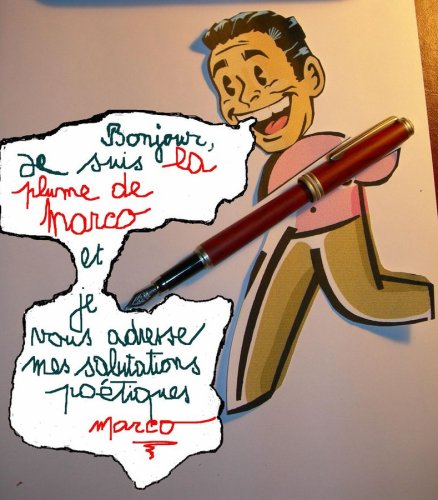 Bonjour,
Je suis la
plume de
Marco
et
je
vous adresse
mes salutations
poétiques
marco